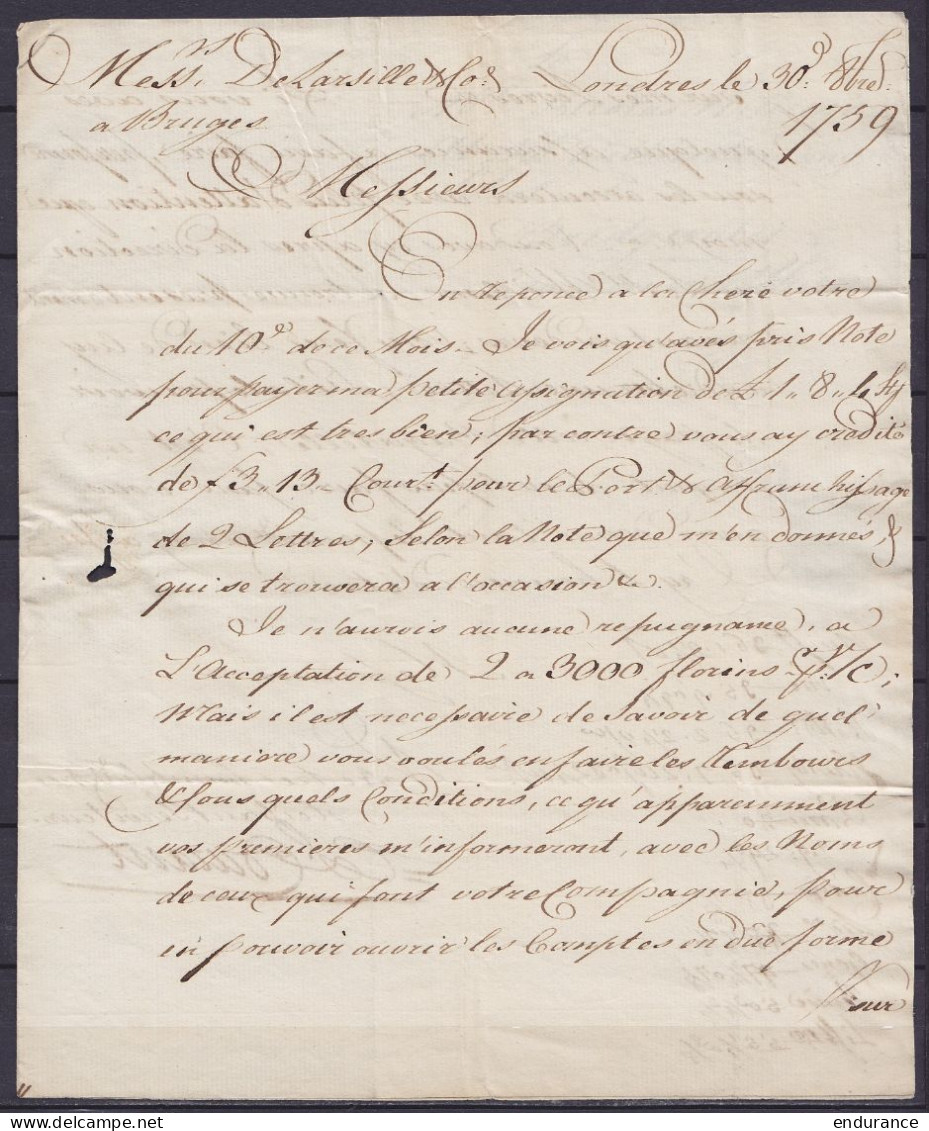 Mess.rs DeLarsille & Co. Londres le 30.e 8bre.
a Bruges 1759
Messieurs
En Reponce a la Chere votre
du 10.e de ce Mois. Je vois qu'avés pris Note
pour payer ma petite assignation de £ 1.. 8..
ce qui est tres bien, par contre vous ay credité
de f 3.. 13. Cour.t pour le Port & affranchissage
de 2 Lettres, Selon la Note que m'en donnés,
qui se trouvera a l'occasion &.
Je n'aurois aucune repugnance, a
L'Acceptation de 2 a 3000 florins p.r V/C;
Mais il est necessaire de Savoir de quel
maniere vous voulés en faire les Rembours
& sous quels Conditions, ce qu'apparemment
vos premieres m'informeront, avec les Noms
de ceux qui font votre Compagnie, pour
en pouvoir ouvrir les Comptes en dûe forme
sur
delcampe.net
endurance